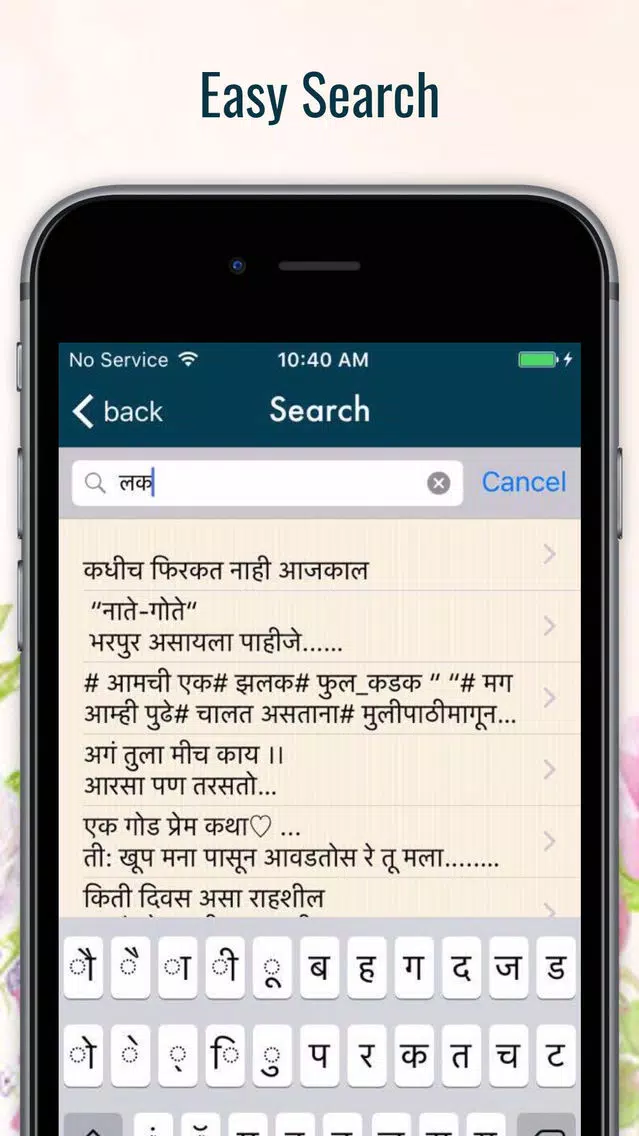 Easy Search
No Service 10:40 AM
back Search
लक Cancel
कधीच फिरकत नाही आजकाल
“नाते-गोते“
भरपुर असायला पाहीजे......
# आमची एक# झलक# फुल_कडक “ “# मग
आम्ही पुढे# चालत असताना# मुलीपाठीमागून...
अगं तुला मीच काय ।।
आरसा पण तरसतो...
एक गोड प्रेम कथा♡ ...
ती: खूप मना पासून आवडतोस रे तू मला........
किती दिवस असा राहशील
ौ ै ा ी ू ब ह ग द ज ड
ो े ् ि ु प र क त च ट